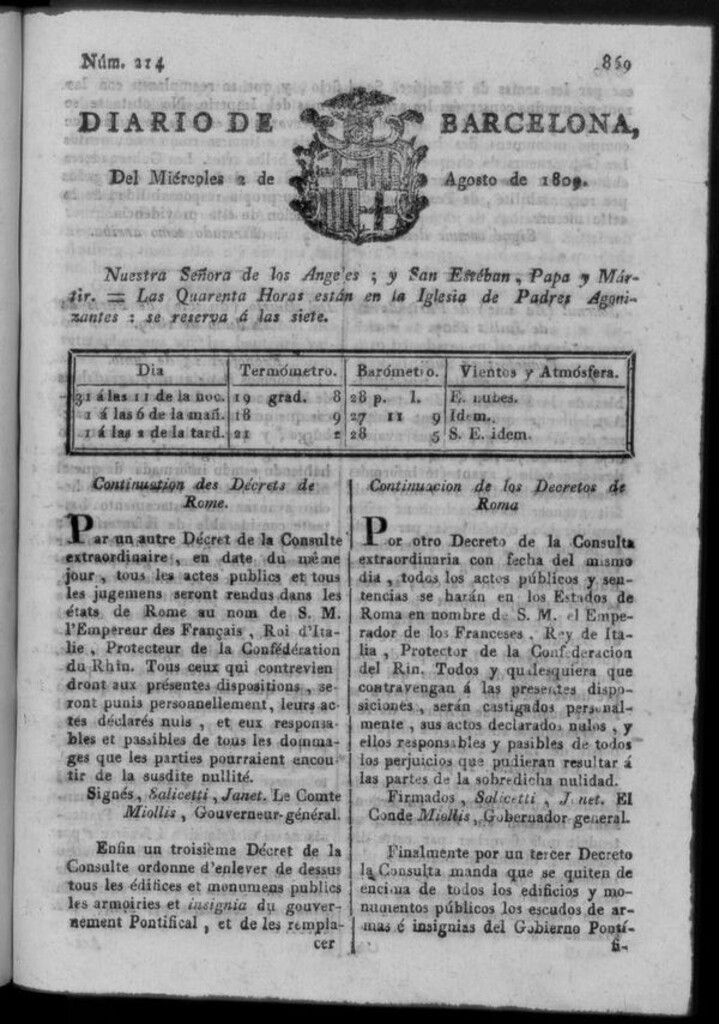 Núm. 214 869
DIARIO DE BARCELONA,
Del Miércoles 2 de Agosto de 1809.
Nuestra Señora de los Angeles ; y San Estéban, Papa y Már-
tir. = Las Quarenta Horas están en la Iglesia de Padres Agoni-
zantes : se reserva á las siete.
Dia Termómetro. Barómetro. Vientos y Atmósfera.
31 á las 11 de la noc. 19 grad. 8 28 p. 1. E. nubes.
1 á las 6 de la mañ. 18 9 27 11 9 Idem.
1 á las 2 de la tard. 21 2 28 5 S. E. idem.
Continuation des Décrets de
Rome.
Par un autre Décret de la Consulte
extraordinaire, en date du même
jour, tous les actes publics et tous
les jugemens seront rendus dans les
états de Rome au nom de S. M.
l'Empereur des Français, Roi d'Ita-
lie, Protecteur de la Confédération
du Rhin. Tous ceux qui contrevien
dront aux présentes dispositions, se-
ront punis personnellement, leurs ac
tes déclarés nuls, et eux responsa-
bles et passibles de tous les domma-
ges que les parties pourraient encou
tir de la susdite nullité.
Signés, Salicetti, Janet. Le Comte
Miollis, Gouverneur-général.
Enfin un troisième Décret de la
Consulte ordonne d'enlever de dessus
tous les édifices et monumens publics
les armoiries et insignia du gouver-
nement Pontifical, et de les rempla-
cer
Continuacion de los Decretos de
Roma
Por otro Decreto de la Consulta
extraordinaria con fecha del mismo
dia, todos los actos públicos y sen-
tencias se harán en los Estados de
Roma en nombre de S. M. el Empe-
rador de los Franceses, Rey de Ita-
lia, Protector de la Confederacion
del Rin. Todos y qualesquiera que
contravengan á las presentes dispo-
siciones, serán castigados personal-
mente, sus actos declarados nulos, y
ellos responsables y pasibles de todos
los perjuicios que pudieran resultar á
las partes de la sobredicha nulidad.
Firmados, Salicetti, Janet. El
Conde Miollis, Gobernador general.
Finalmente por un tercer Decreto
la Consulta manda que se quiten de
encima de todos los edificios y mo-
numentos públicos los escudos de ar-
mas é insignias del Gobierno Pontí-
fi-